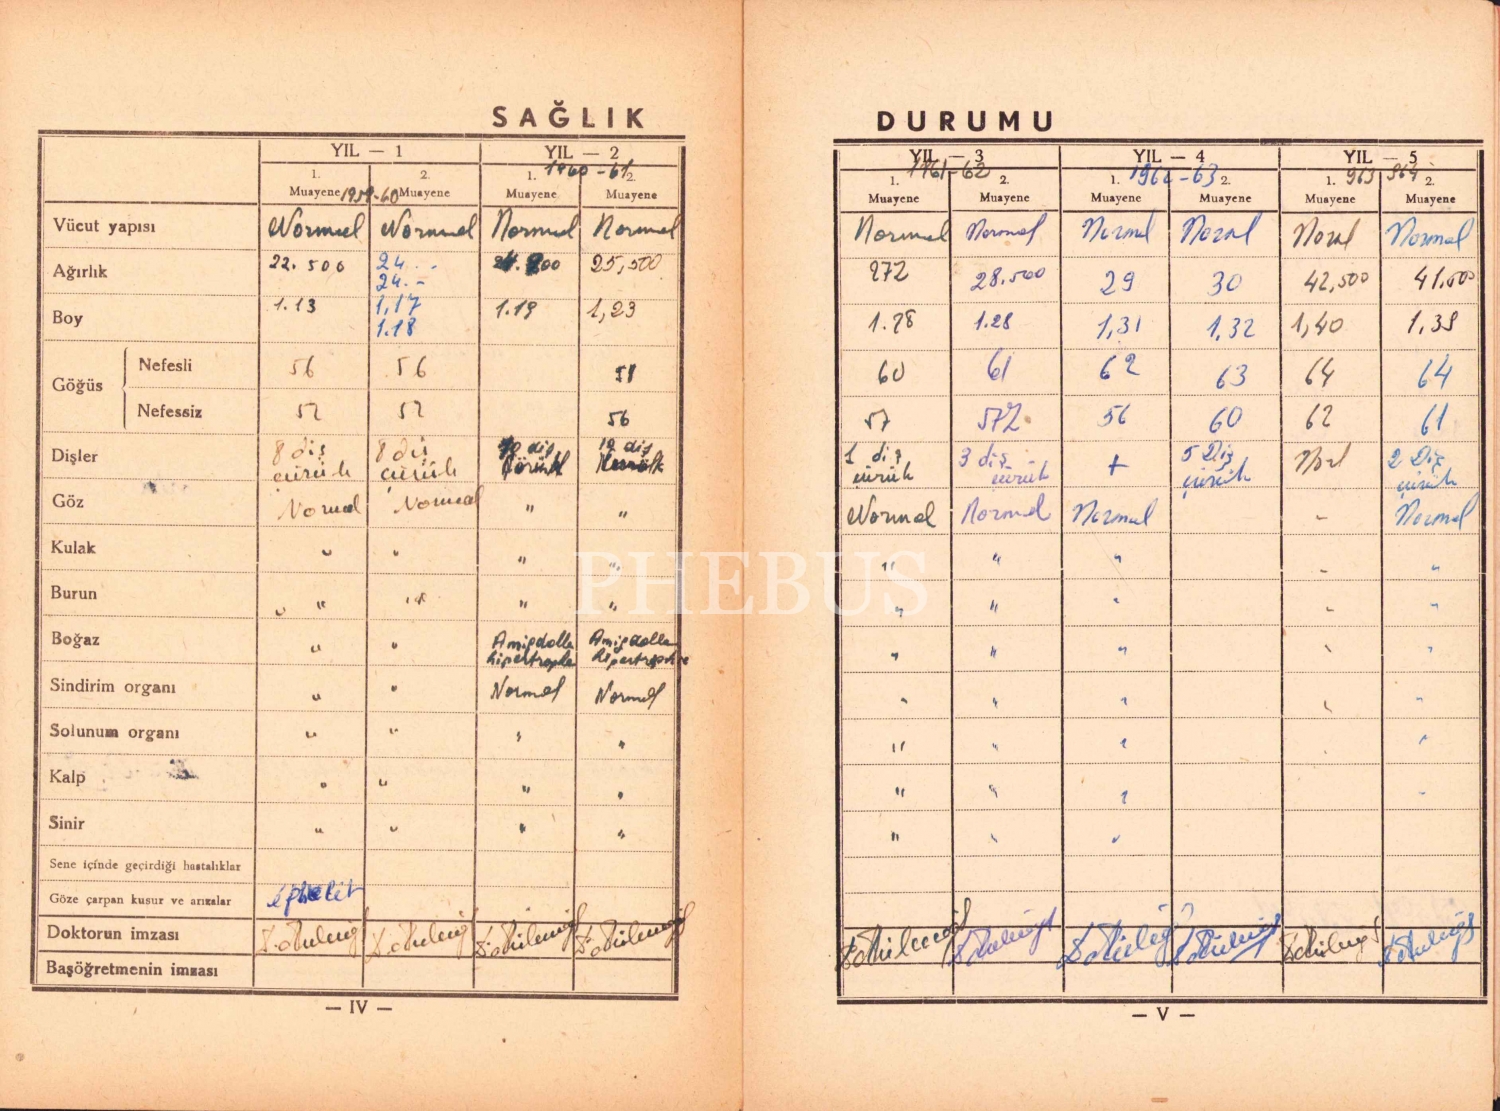 SAĞLIK
YIL — 1 YIL — 2
1960-61
1. 2. 1. 2.
Muayene 1959-60 Muayene Muayene Muayene
Vücut yapısı Normal Normal Normal Normal
Ağırlık 22.500 24 .. 25,500
24.-
Boy 1.13 1,17 1.19 1,23
1.18
Göğüs
Nefesli 56 56 58
Nefessiz 52 52 56
Dişler 8 diş 8 diş 10 diş 12 diş
çürük çürük çürük
Göz Normal Normal " "
Kulak " " " "
Burun " " " "
Boğaz " " Amigdalla Amigdalla
hipertrophe hipertrophe
Sindirim organı " " Normal Normal
Solunum organı " " " "
Kalp " " " "
Sinir " " " "
Sene içinde geçirdiği hastalıklar
Göze çarpan kusur ve arızalar
Doktorun imzası
Başöğretmenin imzası
— IV —
DURUMU
YIL — 3 YIL — 4 YIL — 5
1961-62 1962-63 963 964
1. 2. 1. 2. 1. 2.
Muayene Muayene Muayene Muayene Muayene Muayene
Normal Normal Normal Normal Normal
272 28.500 29 30 42,500 41.500
1.28 1.28 1,31 1,32 1,40 1,39
60 61 62 63 64 64
57 572 56 60 62 61
1 diş 3 diş + 5 Diş 2 Diş
çürük çürük çürük çürük
Normal Normal Normal - Normal
" " " - "
" " " - "
" " " "
" " " "
" " " "
" " " -
" " "
— V —
PHEBUS